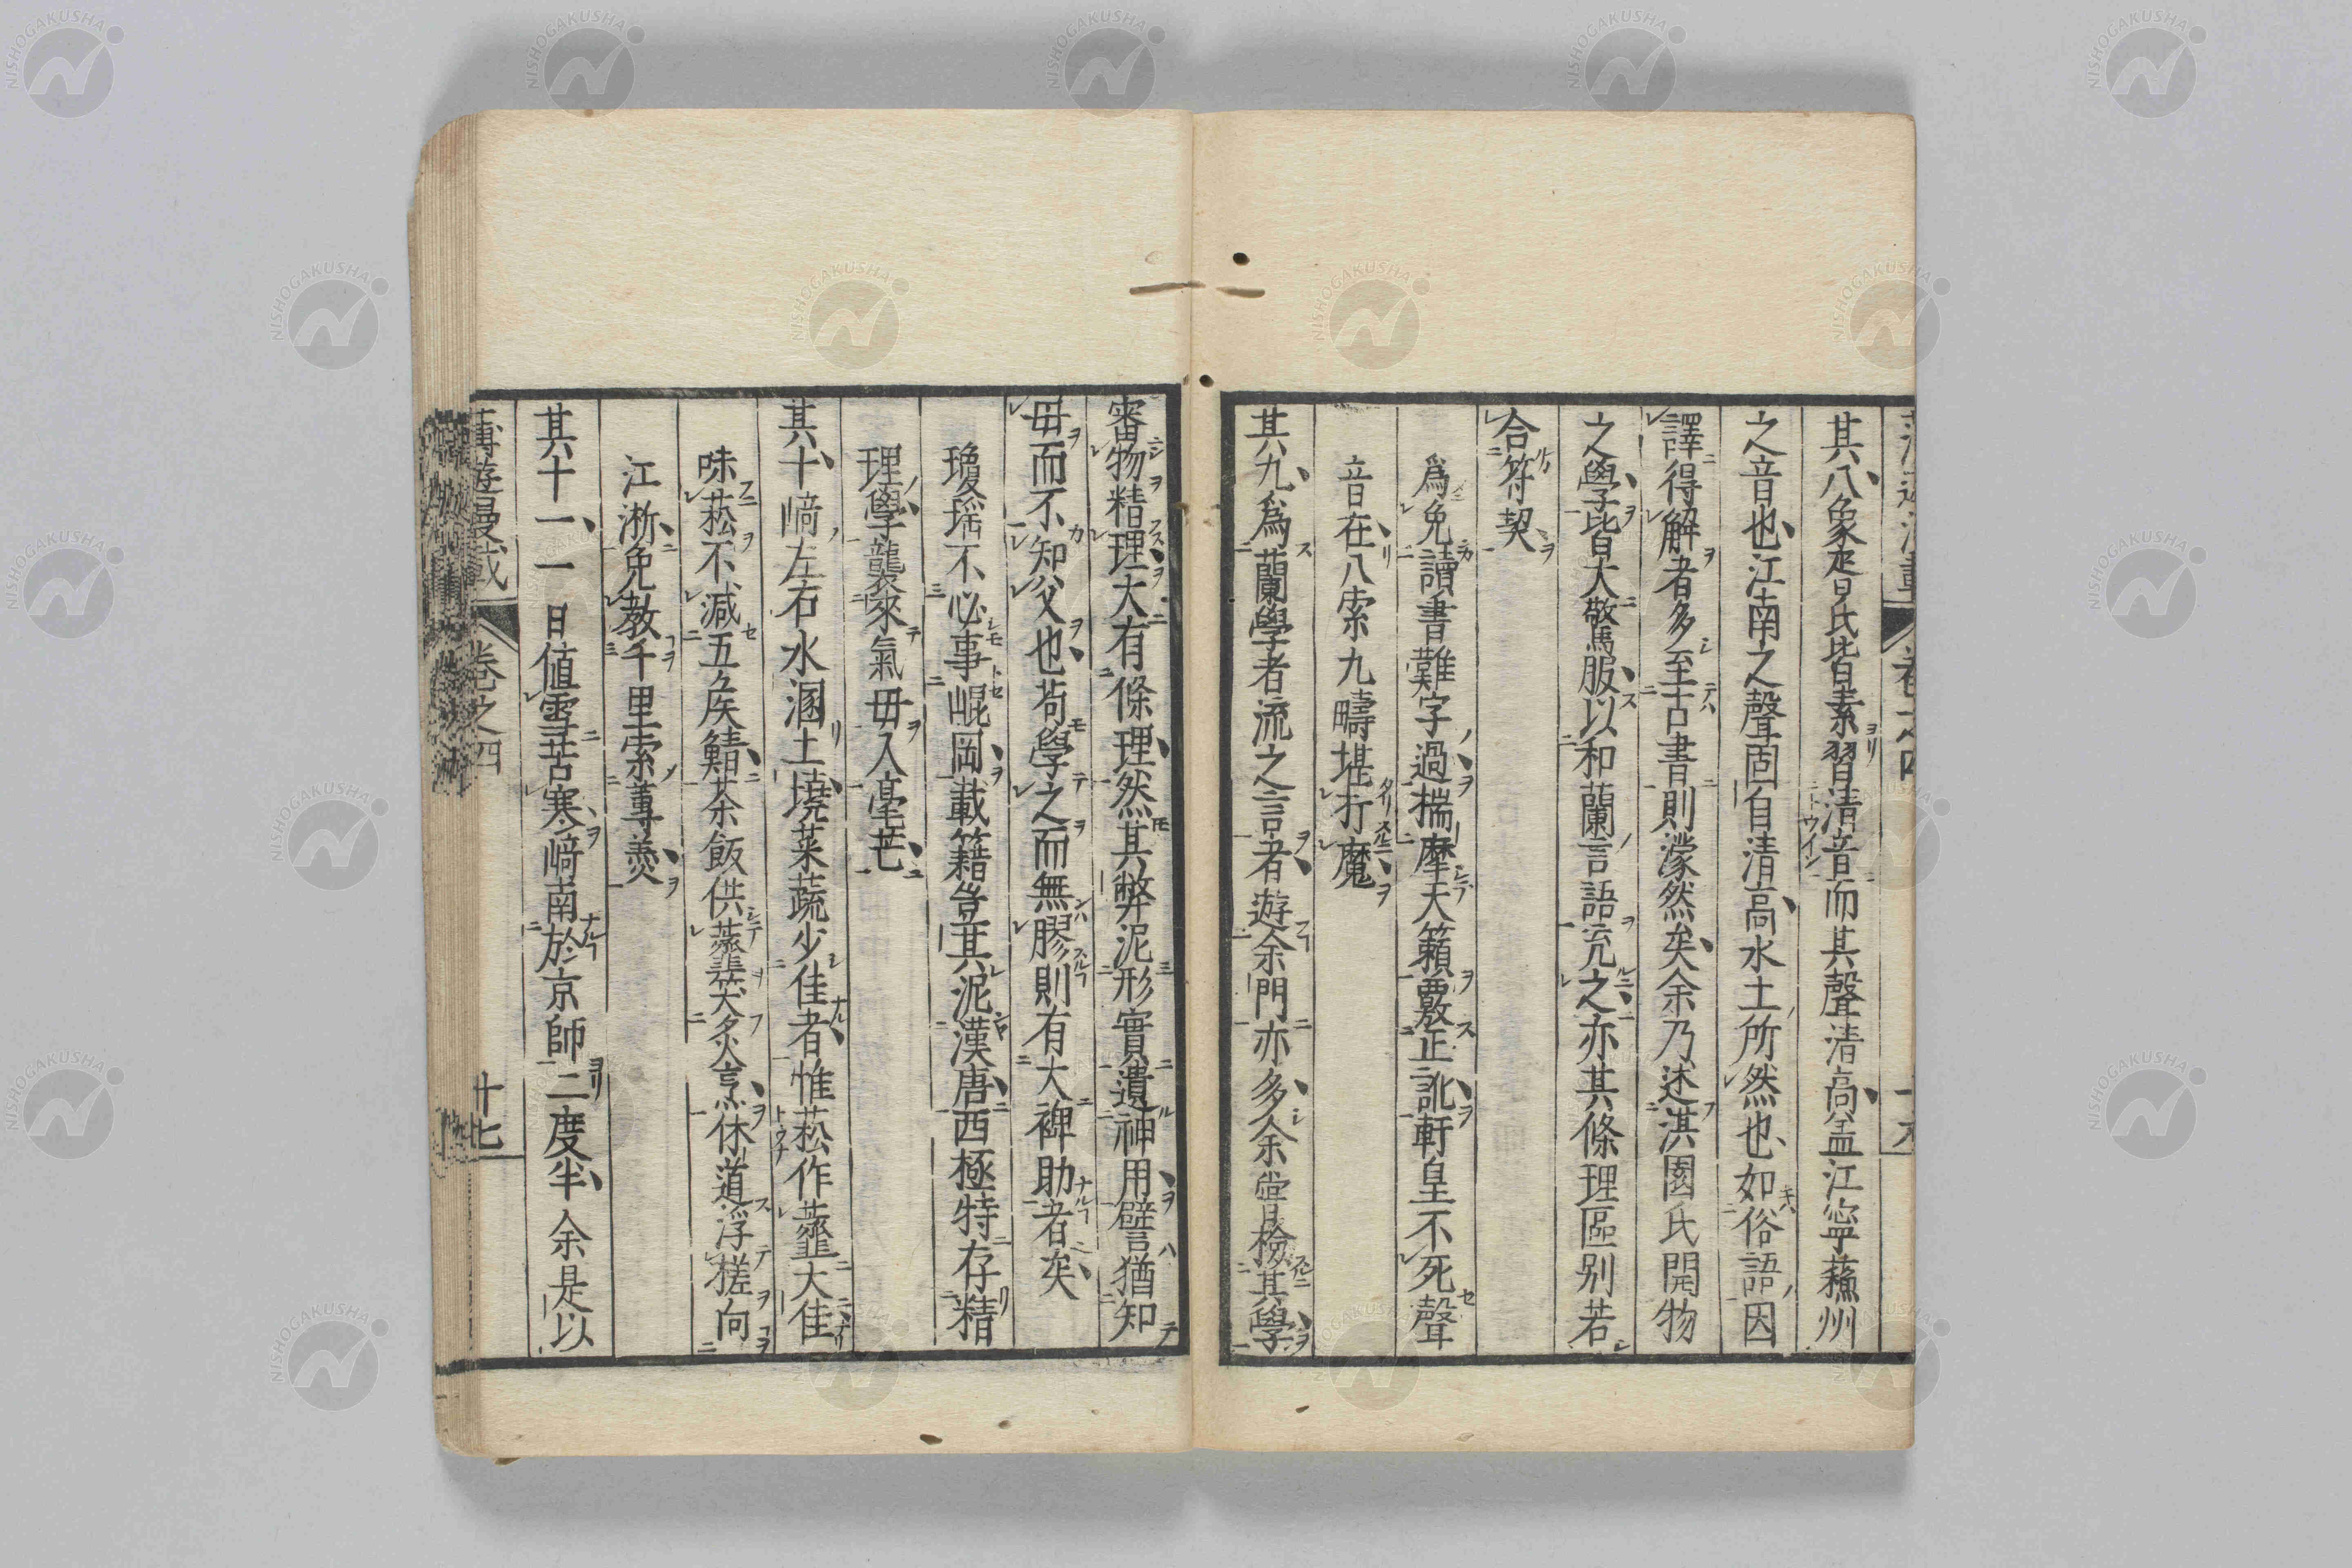 其八象胥氏皆素習清音而其聲清高盖江寧蘓州
之音也江南之聲固自清高水土所然也如俗語因
譯得解者多至古書則濛然矣余乃述淇園氏開物
之學皆大驚服以和蘭言語究之亦其條理區别若
合符契
爲免讀書難字過揣摩天籟覈正訛軒皇不死聲
音在八索九疇堪打魔
其九爲蘭學者流之言者遊余門亦多余嘗檢其學
審物精理大有條理然其弊泥形實遺神用譬猶知
毋而不知父也苟學之而無膠則有大裨助者矣
瓊瑤不必事崐岡載籍豈其泥漢唐西極特存精
理學襲來氣毋入毫芒
其十﨑左右水溷土墝菜蔬少佳者惟菘作虀大佳
味菘不減五矦鯖茶飯供虀奚炙烹休道浮槎向
江淅免教千里索蓴羮
其十一一日値雪苦寒﨑南於京師二度半余是以
卷之四
十七
NISHOGAKUSHA